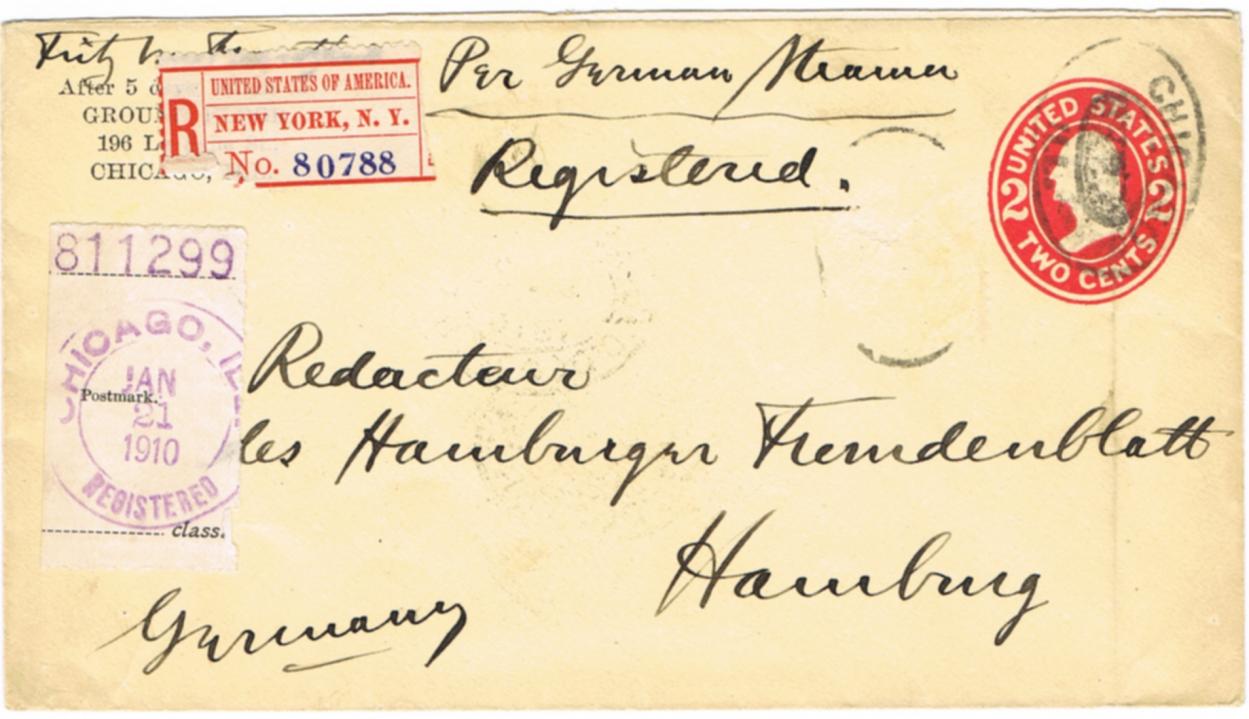 Fritz
After 5 d
GROUN
196 L
CHICAGO,
R
UNITED STATES OF AMERICA.
NEW YORK, N. Y.
No. 80788
Per German Steamer
Registered.
UNITED STATES
2 2
TWO CENTS
CHIC
811299
CHICAGO, ILL
JAN
21
1910
Postmark.
REGISTERED
class.
Redacteur
des Hamburger Fremdenblatt
Hamburg
Germany